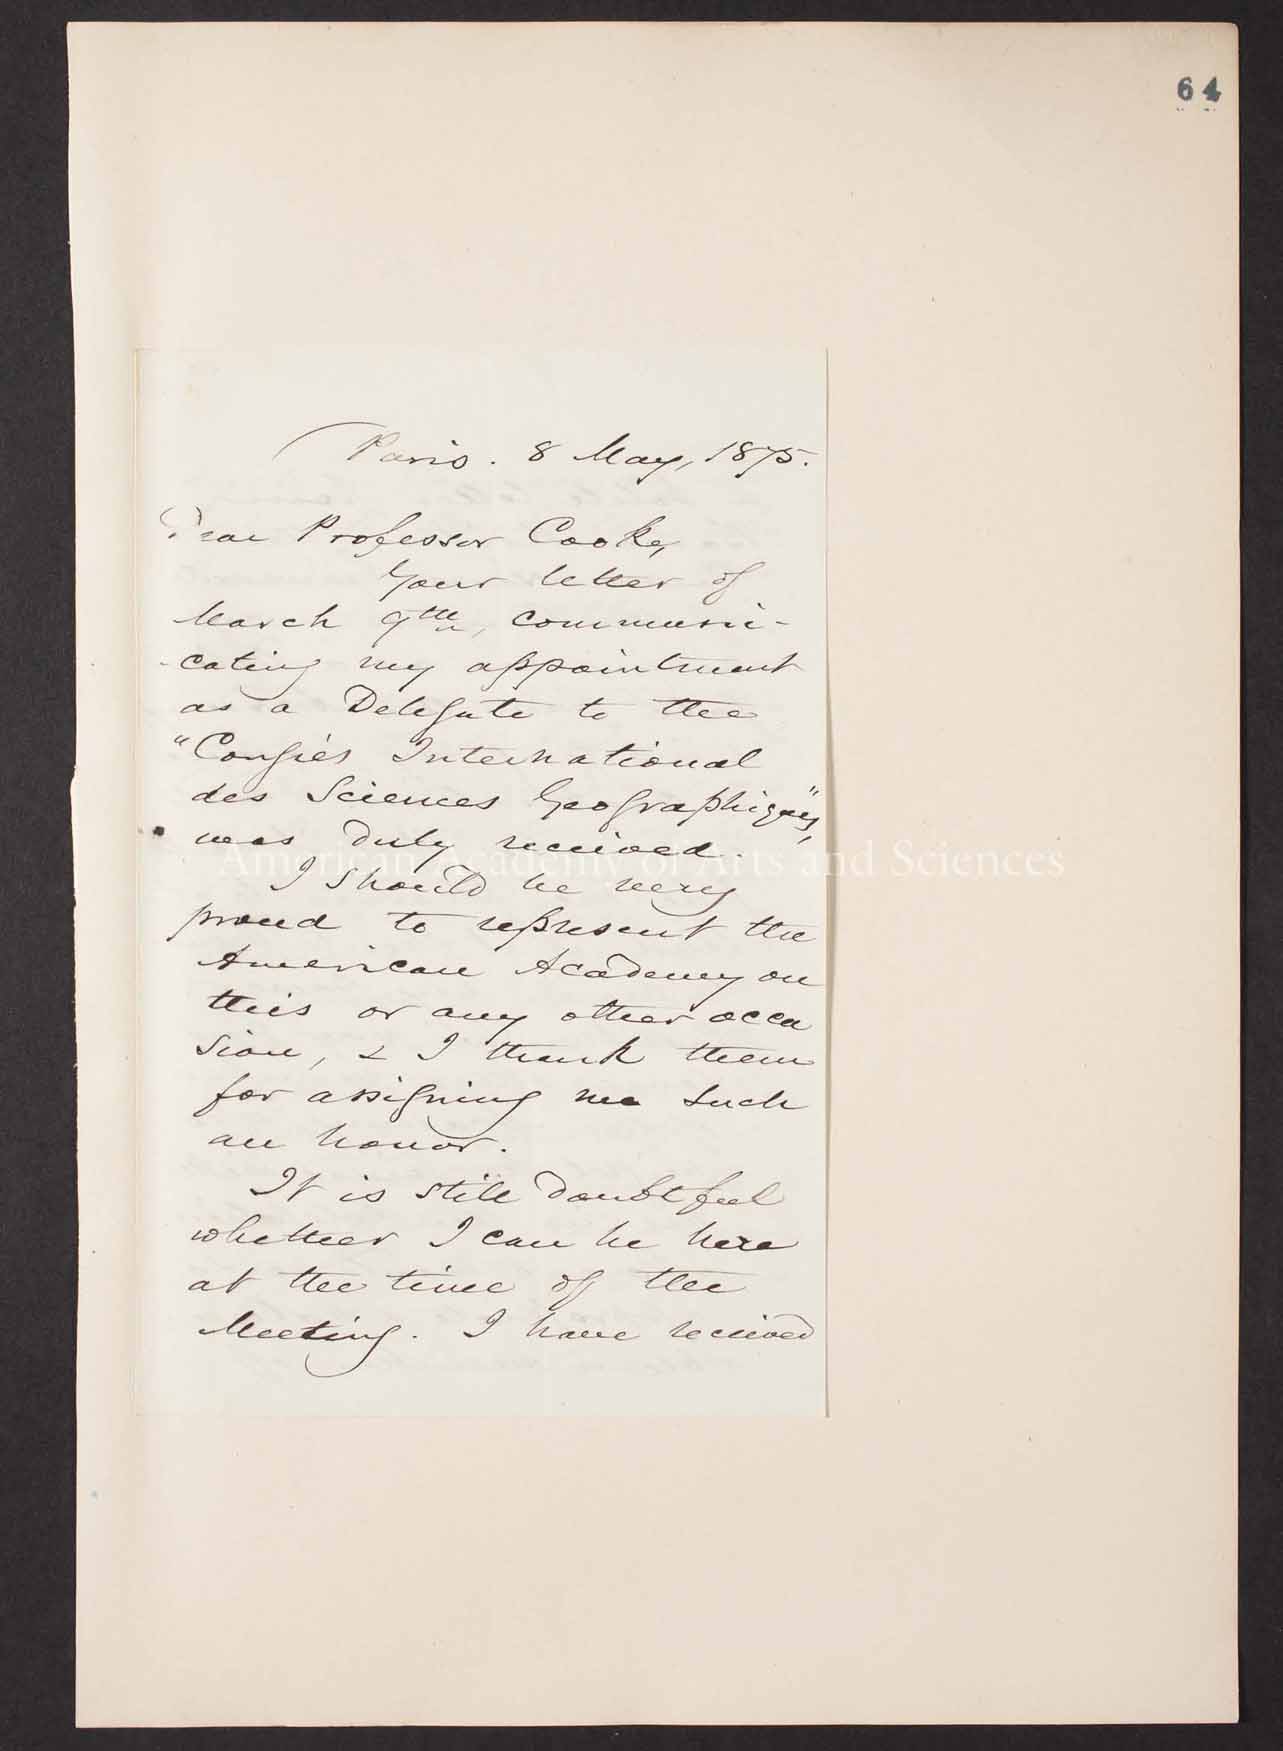 64
Paris. 8 May, 1875.
Dear Professor Cooke,
Your letter of
March 9th, communi-
-cating my appointment
as a Delegate to the
"Congrés International
des Sciences Geographiques",
was duly received.
American Academy of Arts and Sciences
I should be very
proud to represent the
American Academy on
this or any other occa
sion, & I thank them
for assigning me such
an honor.
It is still doubtful
whether I can be here
at the time of the
Meeting. I have received